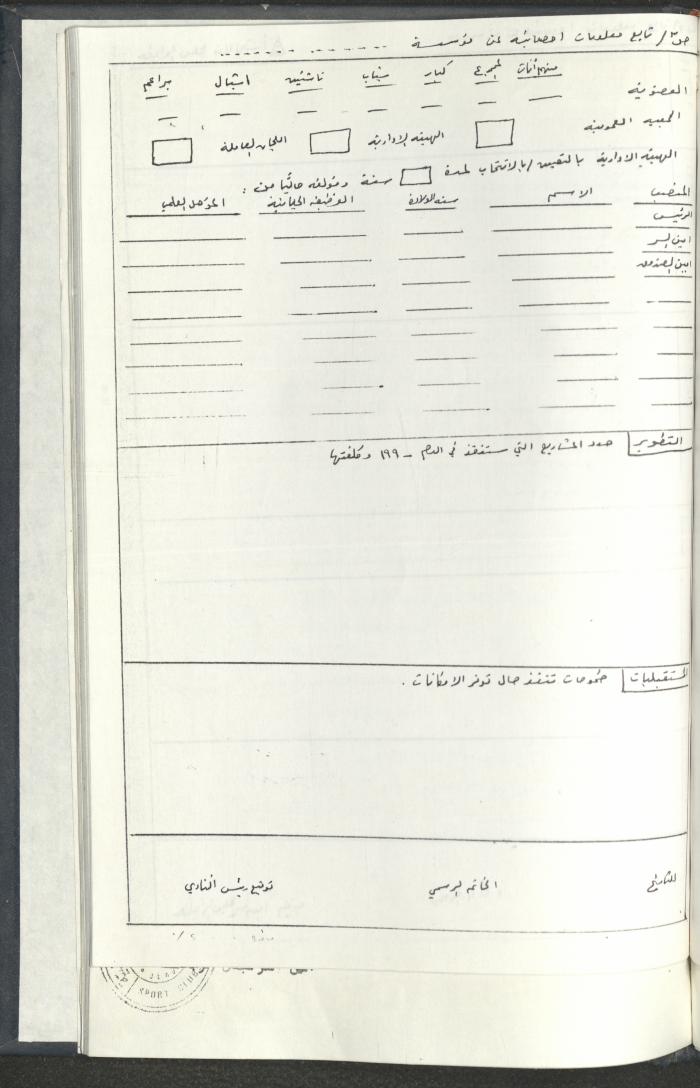 ص٣/ تابع معلومات احصائية عن مؤسسة ..............
العضوية منهم أناث المجموع كبار شباب ناشئين اشبال براعم
الهيئة العمومية الهيئة الادارية اللجان العاملة
الهيئة الادارية بالتعيين/بالانتخاب لمدة سنة ومؤلفة حاليًا من :
المنصب الاسم سنة الولادة الوظيفة الحياتية المؤهل العلمي
الرئيس
امين السر
امين الصندوق
التطوير حدد المشاريع التي ستنفذ في العام - ١٩٩ وكلفتها
المستقبليات طموحات تنفذ حال توفر الامكانات .
التاريخ الخاتم الرسمي توقيع رئيس النادي
SPORT CLUB